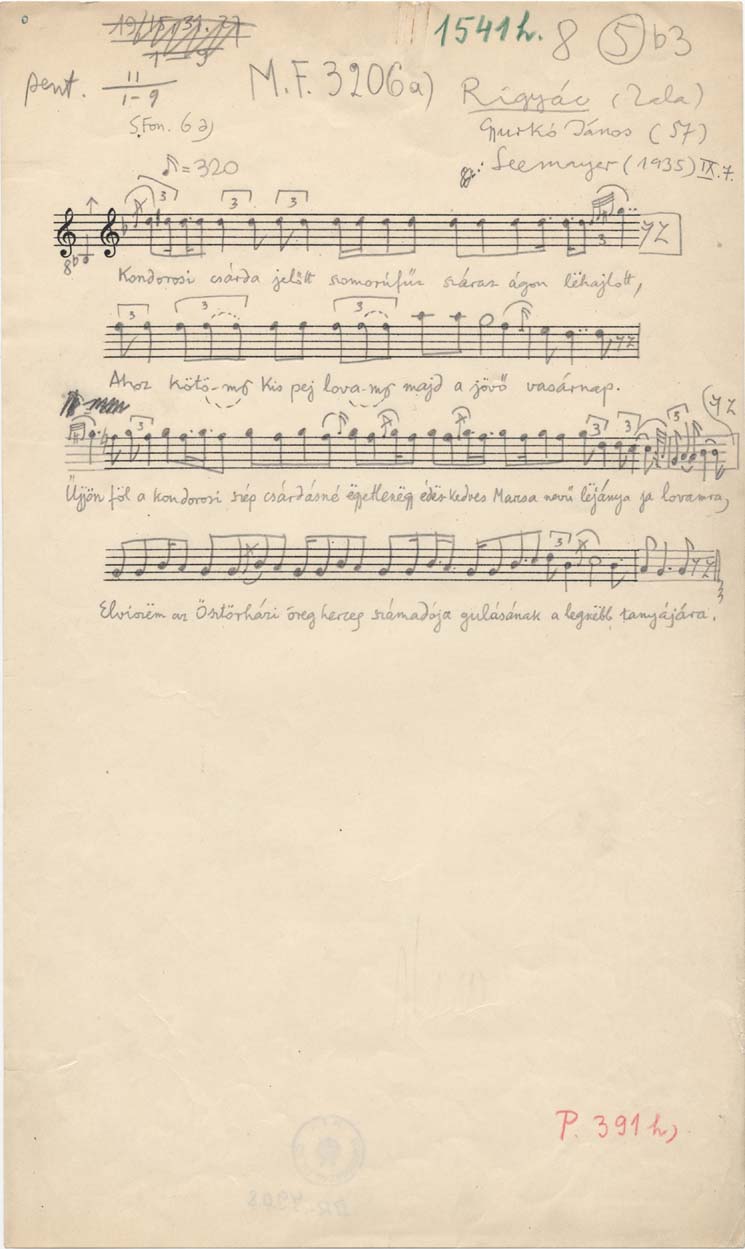 1541h. 8 5 b3
pent. 11
1-9
M.F. 3206a)
Rigyác (Zala)
S.Fon. 6a)
Gyurkó János (57)
gy: Seemayer (1935) IX. 7.
♪=320
3 3 3 3
Kondorosi csárda jelőtt szomorúfűz száraz ágon lëhajlott,
3 3
Ahoz kötö-mg kis pej lova-mg majd a jövő vasárnap.
3 3 3 3
Űjjön föl a kondorosi szép csárdásné ëgyetlenëgy édës kedves Marcsa nevű lëjánya ja lovamra,
3
Elviszëm az Ösztörházi öreg herceg számadója gulásának a legszëbb tanyájára.
P. 391h)